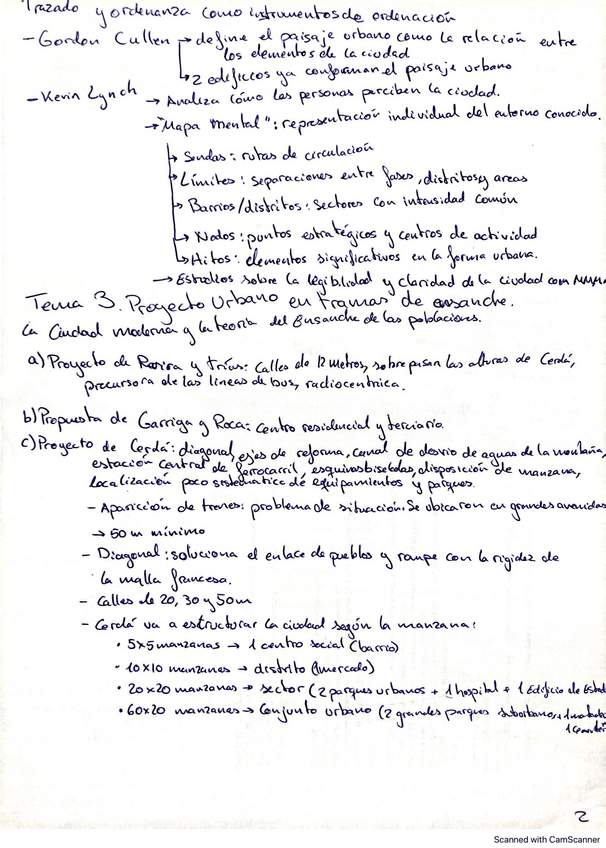 Trazado y ordenanza como instrumentos de ordenación
- Gordon Cullen → define el paisaje urbano como la relación entre
los elementos de la ciudad
↳ 2 edificios ya conforman el paisaje urbano
- Kevin Lynch → Analiza cómo las personas perciben la ciudad.
→ "Mapa mental": representación individual del entorno conocido.
→ Sendas: rutas de circulación
→ Límites: separaciones entre fases, distritos y areas
→ Barrios/distritos: sectores con intensidad común
→ Nodos: puntos estratégicos y centros de actividad
↳ Hitos: elementos significativos en la forma urbana.
→ Estudios sobre la legibilidad y claridad de la ciudad como
Tema 3. Proyecto Urbano en tramas de ensanche.
La Ciudad moderna y la teoría del Ensanche de las poblaciones.
a) Proyecto de Rovira y Trías: Calles de 12 metros, sobrepasan las alturas de Cerdá,
precursora de las líneas de bus, radiocentrica.
b) Propuesta de Garriga y Roca: centro residencial y terciario
c) Proyecto de Cerdá: diagonal, ejes de reforma, canal de desvio de aguas de la montaña,
estación central de ferrocarril, esquinas biseladas, disposición de manzana,
localización poco sistematica de equipamientos y parques.
- Aparición de trenes: problema de situación. Se ubicaron en grandes avenidas
→ 50 m mínimo
- Diagonal: soluciona el enlace de pueblos y rompe con la rigidez de
la malla francesa.
- Calles de 20, 30 y 50m
- Cerdá va a estructurar la ciudad según la manzana:
• 5x5 manzanas → 1 centro social (barrio)
• 10x10 manzanas → distrito (1mercado)
• 20x20 manzanas → sector (2 parques urbanos + 1 hospital + 1 Edificio de Estad
• 60x20 manzanas → Conjunto urbano (2 grandes parques suburbanos, +
2
Scanned with CamScanner